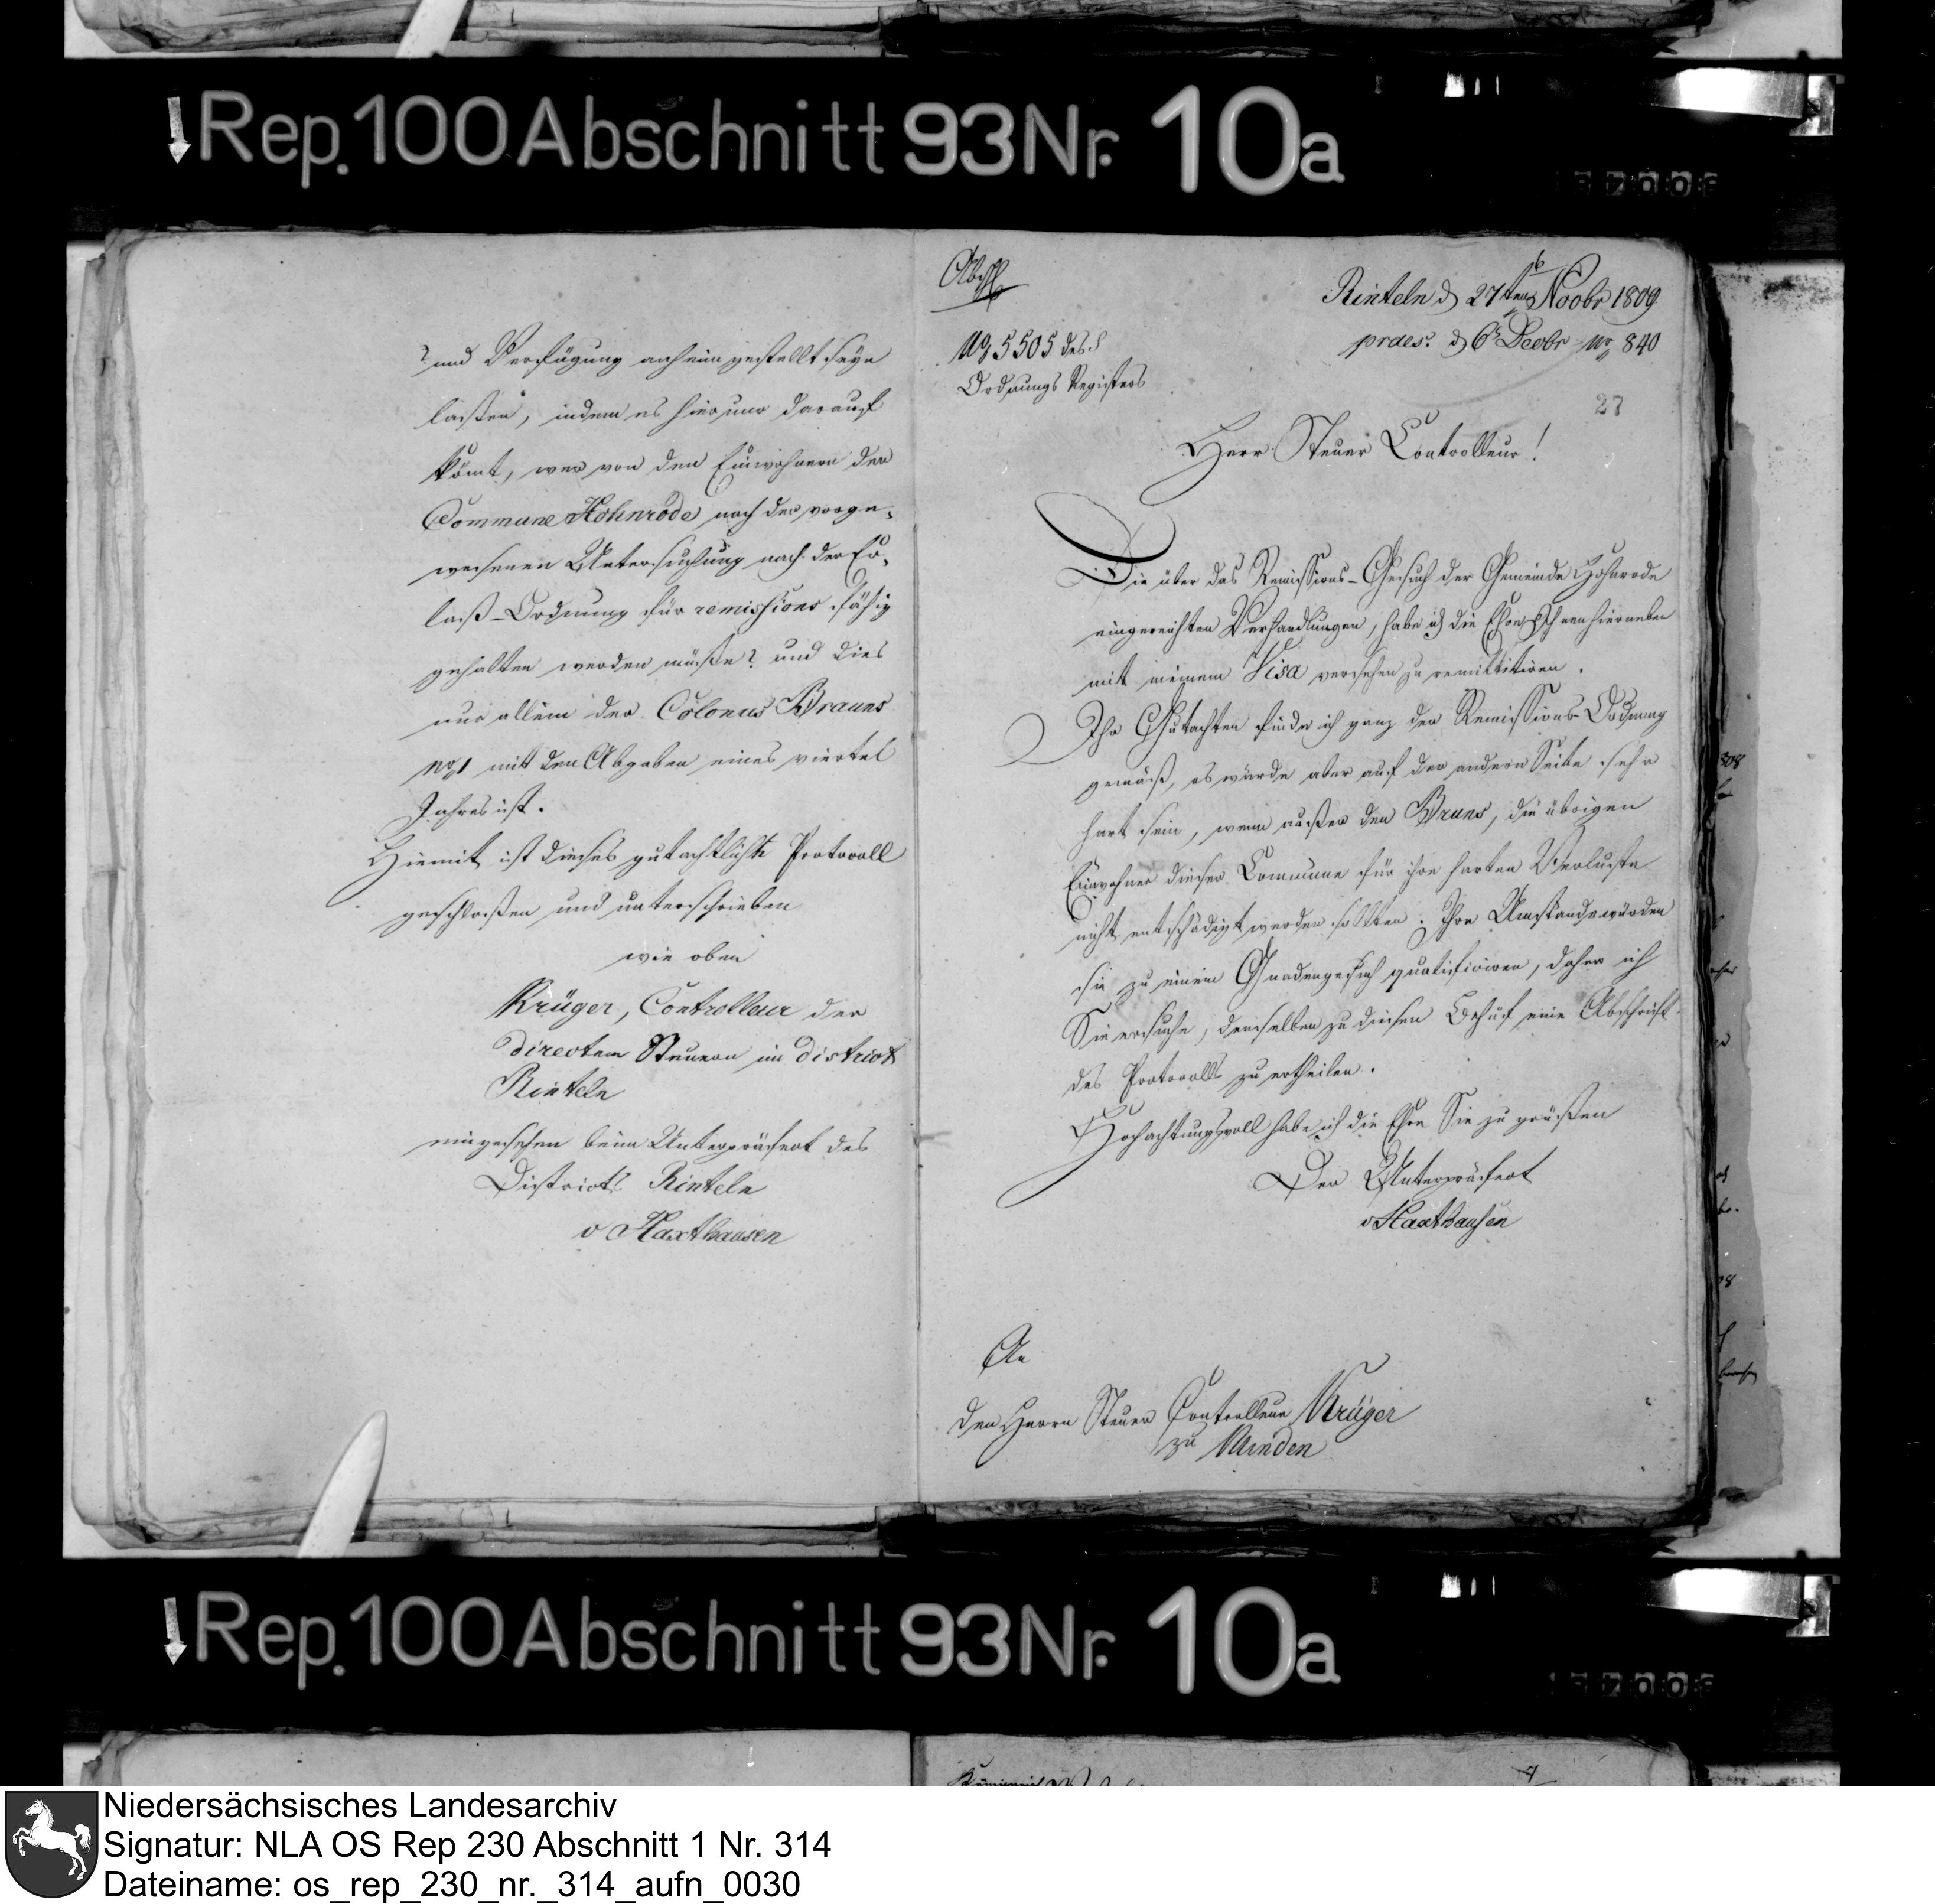 Rep. 100 Abschnitt 93 Nr. 10a
und Verfügung anheim gestellt seyn
laßen, indem es hier nur darauf
kömt, wer von den Einwohnern der
Commune Hohnrode nach der vorge-
wesenen Untersuchung nach der Er-
laß-Ordnung für remissions fähig
gehalten werden müße? und dies
nur allein der Colonus Brauns
No 1 mit den Abgaben eines viertel
Jahres ist.
Hiemit ist dieses gutachtliche Protocoll
geschloßen und unterschrieben
wie oben
Krüger, Controlleur der
directen Steuern im district
Rinteln
eingesehen beim Unterpräfect des
Districts Rinteln
v Haxthausen
Abschr
No 5505 des
Ordnungs Registers
Rinteln d 27ten Novbr 1809
praes. d 6 Decbr No 840
27
Herr Steuer Controlleur!
Die über das Remissions-Gesuch der Gemeinde Hohnrode
eingereichten Verhandlungen, habe ich die Ehre Ihnen hierneben
mit meinem Visa versehen zu remittitiren.
Ihr Gutachten finde ich ganz der Remissions-Ordnung
gemäß, es würde aber auf der andern Seite sehr
hart sein, wenn außer den Bruns, die übrigen
Einwohner dieser Commune für ihre harten Verluste
nicht entschädigt werden sollten. Ihre Umstände würden
sie zu einem Gnadengesuch qualificiren, daher ich
Sie ersuche, denselben zu diesem Behuf eine Abschrift
des Protocolls zu ertheilen.
Hochachtungsvoll habe ich die Ehre Sie zu grüßen
Der Unterpräfect
v Haxthausen
An
den Herrn Steuer Controlleur Krüger
zu Minden
Rep. 100 Abschnitt 93 Nr. 10a
Niedersächsisches Landesarchiv
Signatur: NLA OS Rep 230 Abschnitt 1 Nr. 314
Dateiname: os_rep_230_nr._314_aufn_0030